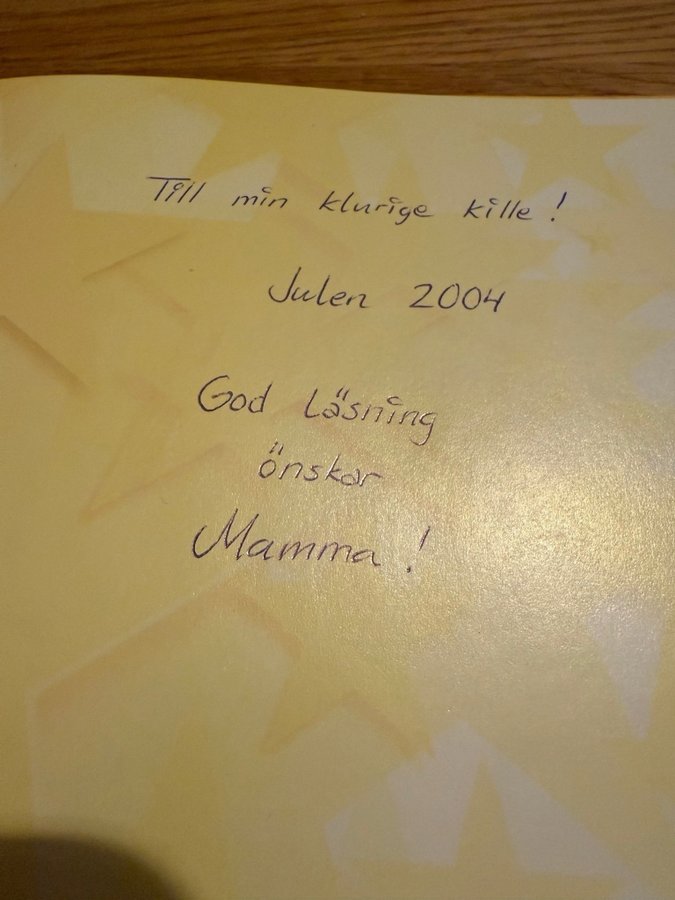 Till min klurige kille!
Julen 2004
God Läsning
önskar
Mamma!